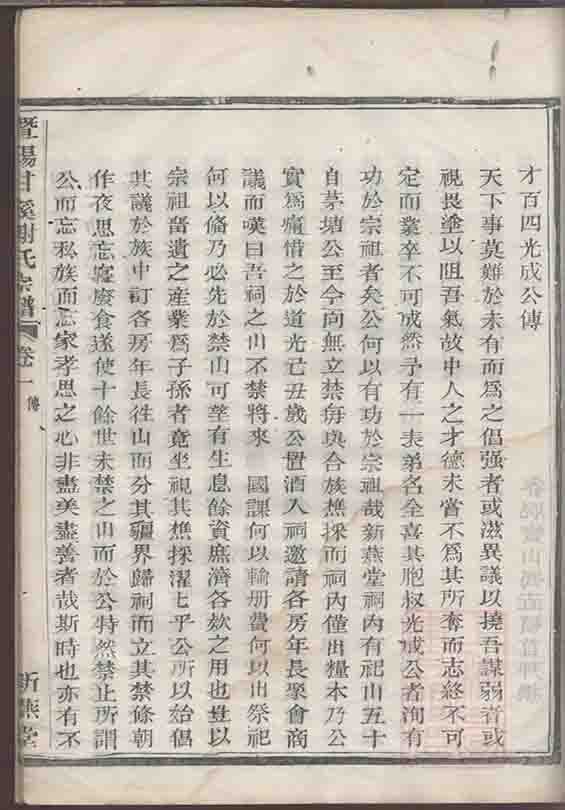 才百四光成公傳
天下事莫難於未有而爲之倡强者或滋異議以撓吾謀弱者或
視畏塗以阻吾氣故中人之才德未嘗不爲其所奪而志終不可
定而業卒不可成然予有一表弟名全喜其胞叔光成公者洵有
功於宗祖者矣公何以有功於宗祖哉新燕堂祠內有祀山五十
自茅塘公至今向無立禁毎與合族樵採而祠內僅出糧本乃公
實爲痛惜之於道光己丑歲公置酒入祠邀請各房年長聚會商
議而嘆曰吾祠之山不禁將來 國課何以輸册費何以出祭祀
何以備乃必先於禁山可望有生息餘資庶濟各欵之用也豈以
宗祖畱遺之産業爲子孫者竟坐視其樵採濯七乎公所以始倡
其議於族中訂各房年長徃山而分其疆界歸祠而立其禁條朝
作夜思忘寢廢食遂使十餘世未禁之山而於公特然禁止所謂
公而忘私族而忘家孝思之心非盡美盡善者哉斯時也亦有不
暨陽甘溪謝氏宗譜 卷一 傳 新燕堂